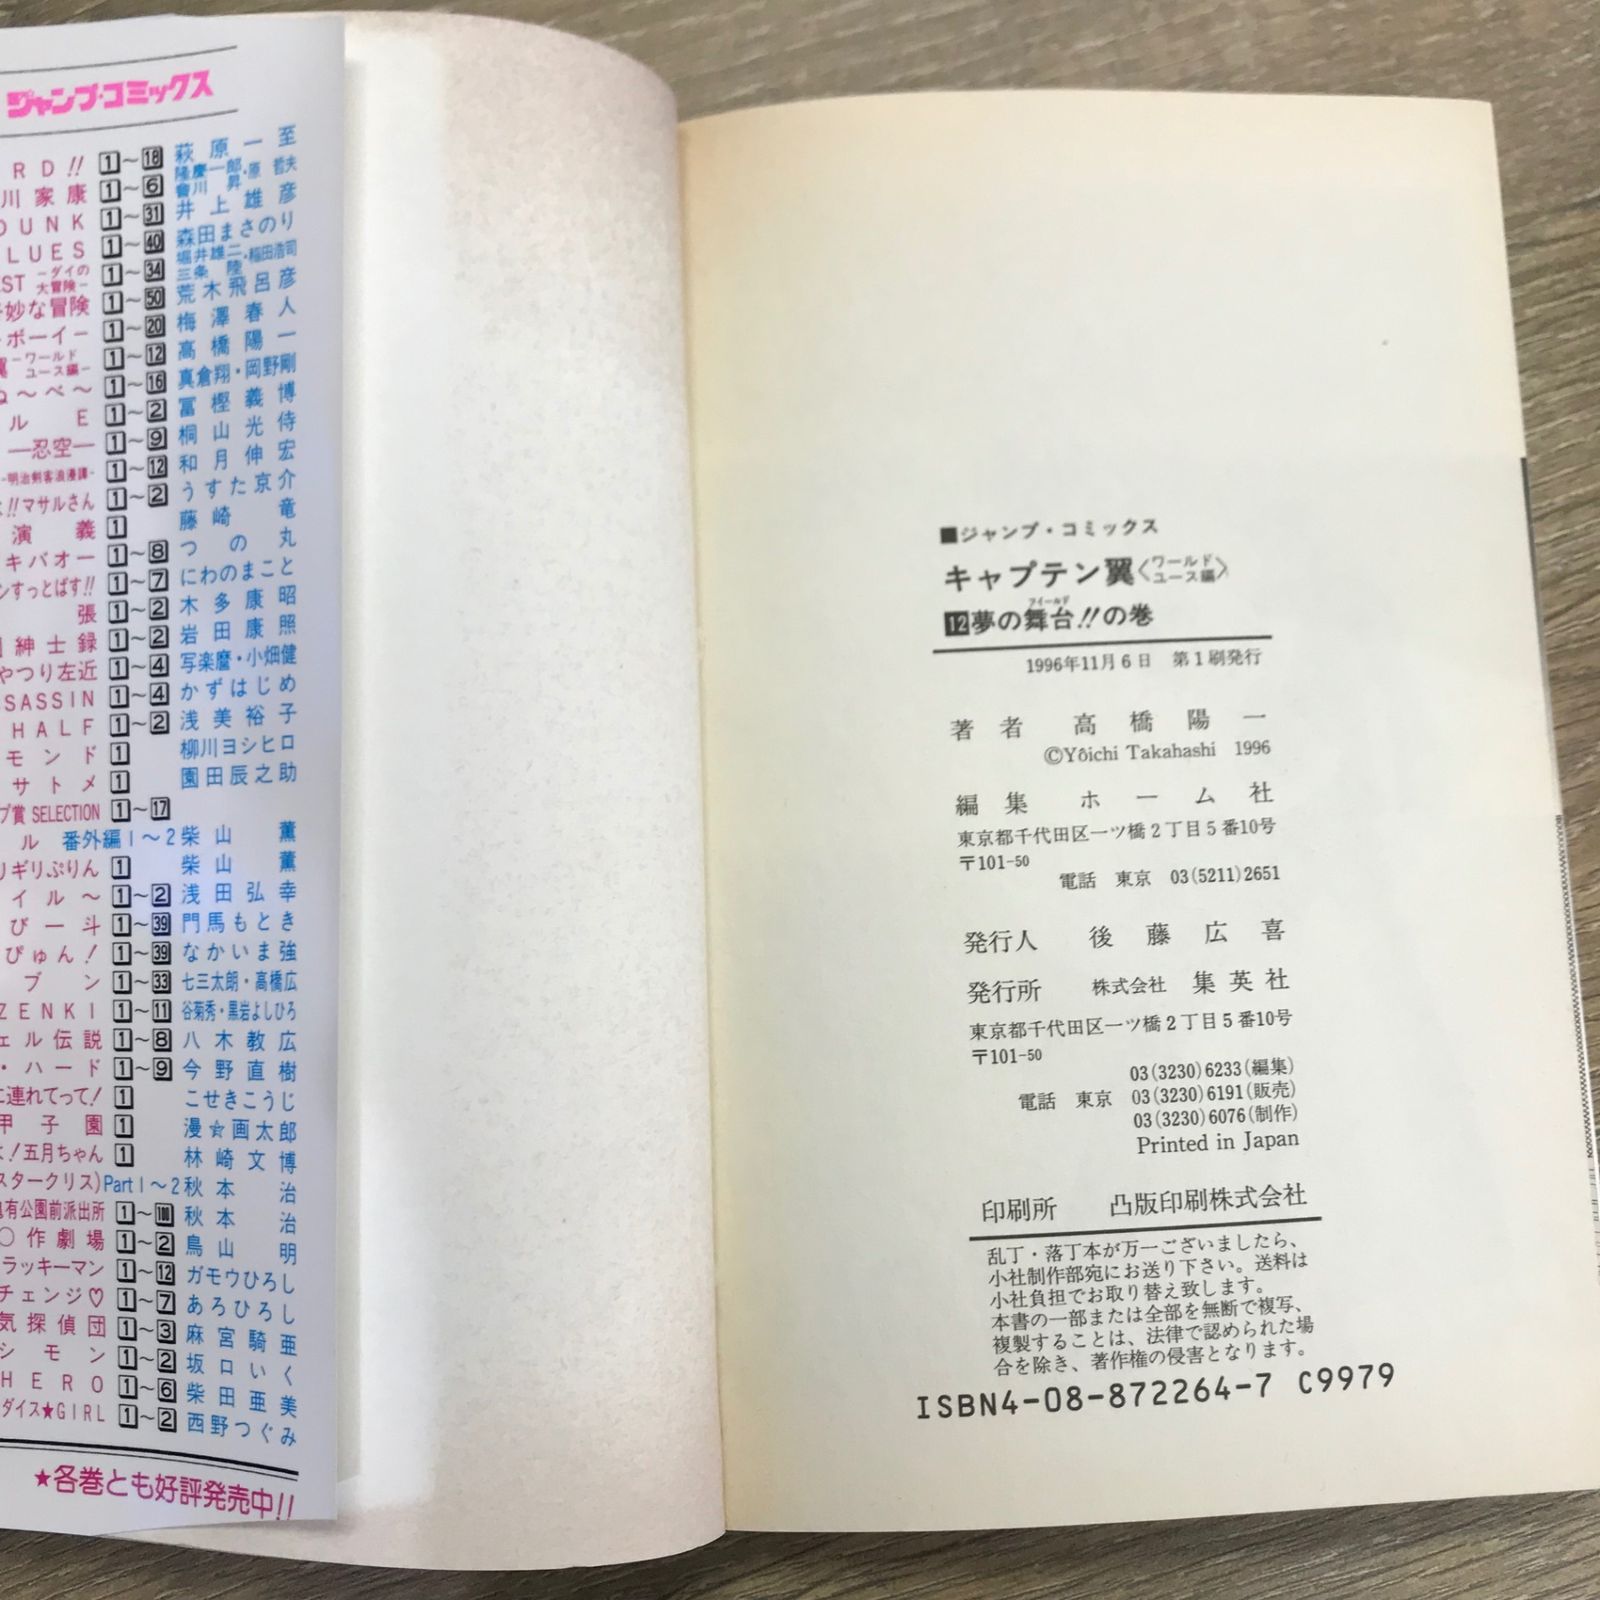 ジャンプ・コミックス
RD!! 1〜18 萩原一至
川家康 1〜6 隆慶一郎・原哲夫 會川昇
DUNK 1〜31 井上雄彦
LUES 1〜40 森田まさのり
ST －ダイの大冒険－ 1〜34 堀井雄二・稲田浩司 三条陸
妙な冒険 1〜50 荒木飛呂彦
ボーイー 1〜20 梅澤春人
翼 －ワールドユース編－ 1〜12 高橋陽一
ね〜べ〜 1〜16 真倉翔・岡野剛
ルE 1〜2 冨樫義博
―忍空― 1〜9 桐山光侍
-明治剣客浪漫譚- 1〜12 和月伸宏
!!マサルさん 1〜2 うすた京介
演義 1 藤崎竜
キバオー 1〜8 つの丸
ンすっとばす!! 1〜7 にわのまこと
張 1〜2 木多康昭
紳士録 1〜2 岩田康照
やつり左近 1〜4 写楽麿・小畑健
SSASSIN 1〜4 かずはじめ
HALF 1〜2 浅美裕子
モンド 1 柳川ヨシヒロ
サトメ 1 園田辰之助
プ賞 SELECTION 1〜17
ル 番外編1〜2 柴山薫
リギリぷりん 1 柴山薫
イル〜 1〜2 浅田弘幸
び一斗 1〜39 門馬もとき
ぴゅん! 1〜39 なかいま強
ブン 1〜33 七三太朗・高橋広
ZENKI 1〜11 谷菊秀・黒岩よしひろ
ェル伝説 1〜8 八木教広
・ハード 1〜9 今野直樹
に連れてって! 1 こせきこうじ
甲子園 1 漫☆画太郎
!五月ちゃん 1 林崎文博
スタークリス)Part1〜2 秋本治
有公園前派出所 1〜100 秋本治
〇作劇場 1〜2 鳥山明
ラッキーマン 1〜12 ガモウひろし
チェンジ♡ 1〜7 あろひろし
気探偵団 1〜3 麻宮騎亜
シモン 1〜2 坂口いく
HERO 1〜6 柴田亜美
ダイス★GIRL 1〜2 西野つぐみ
★各巻とも好評発売中!!
■ジャンプ・コミックス
キャプテン翼〈ワールドユース編〉
フィールド
12夢の舞台!!の巻
1996年11月6日 第1刷発行
著者 高橋陽一
©Yôichi Takahashi 1996
編集 ホーム社
東京都千代田区一ツ橋2丁目5番10号
〒101-50
電話 東京 03(5211)2651
発行人 後藤広喜
発行所 株式会社 集英社
東京都千代田区一ツ橋2丁目5番10号
〒101-50
03(3230)6233(編集)
電話 東京 03(3230)6191(販売)
03(3230)6076(制作)
Printed in Japan
印刷所 凸版印刷株式会社
乱丁・落丁本が万一ございましたら、
小社制作部宛にお送り下さい。送料は
小社負担でお取り替え致します。
本書の一部または全部を無断で複写、
複製することは、法律で認められた場
合を除き、著作権の侵害となります。
ISBN4-08-872264-7 C9979